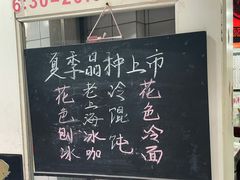 6:30-20:
夏季品种上市
花色刨冰
老上海冰咖
冷馄饨
花色冷面